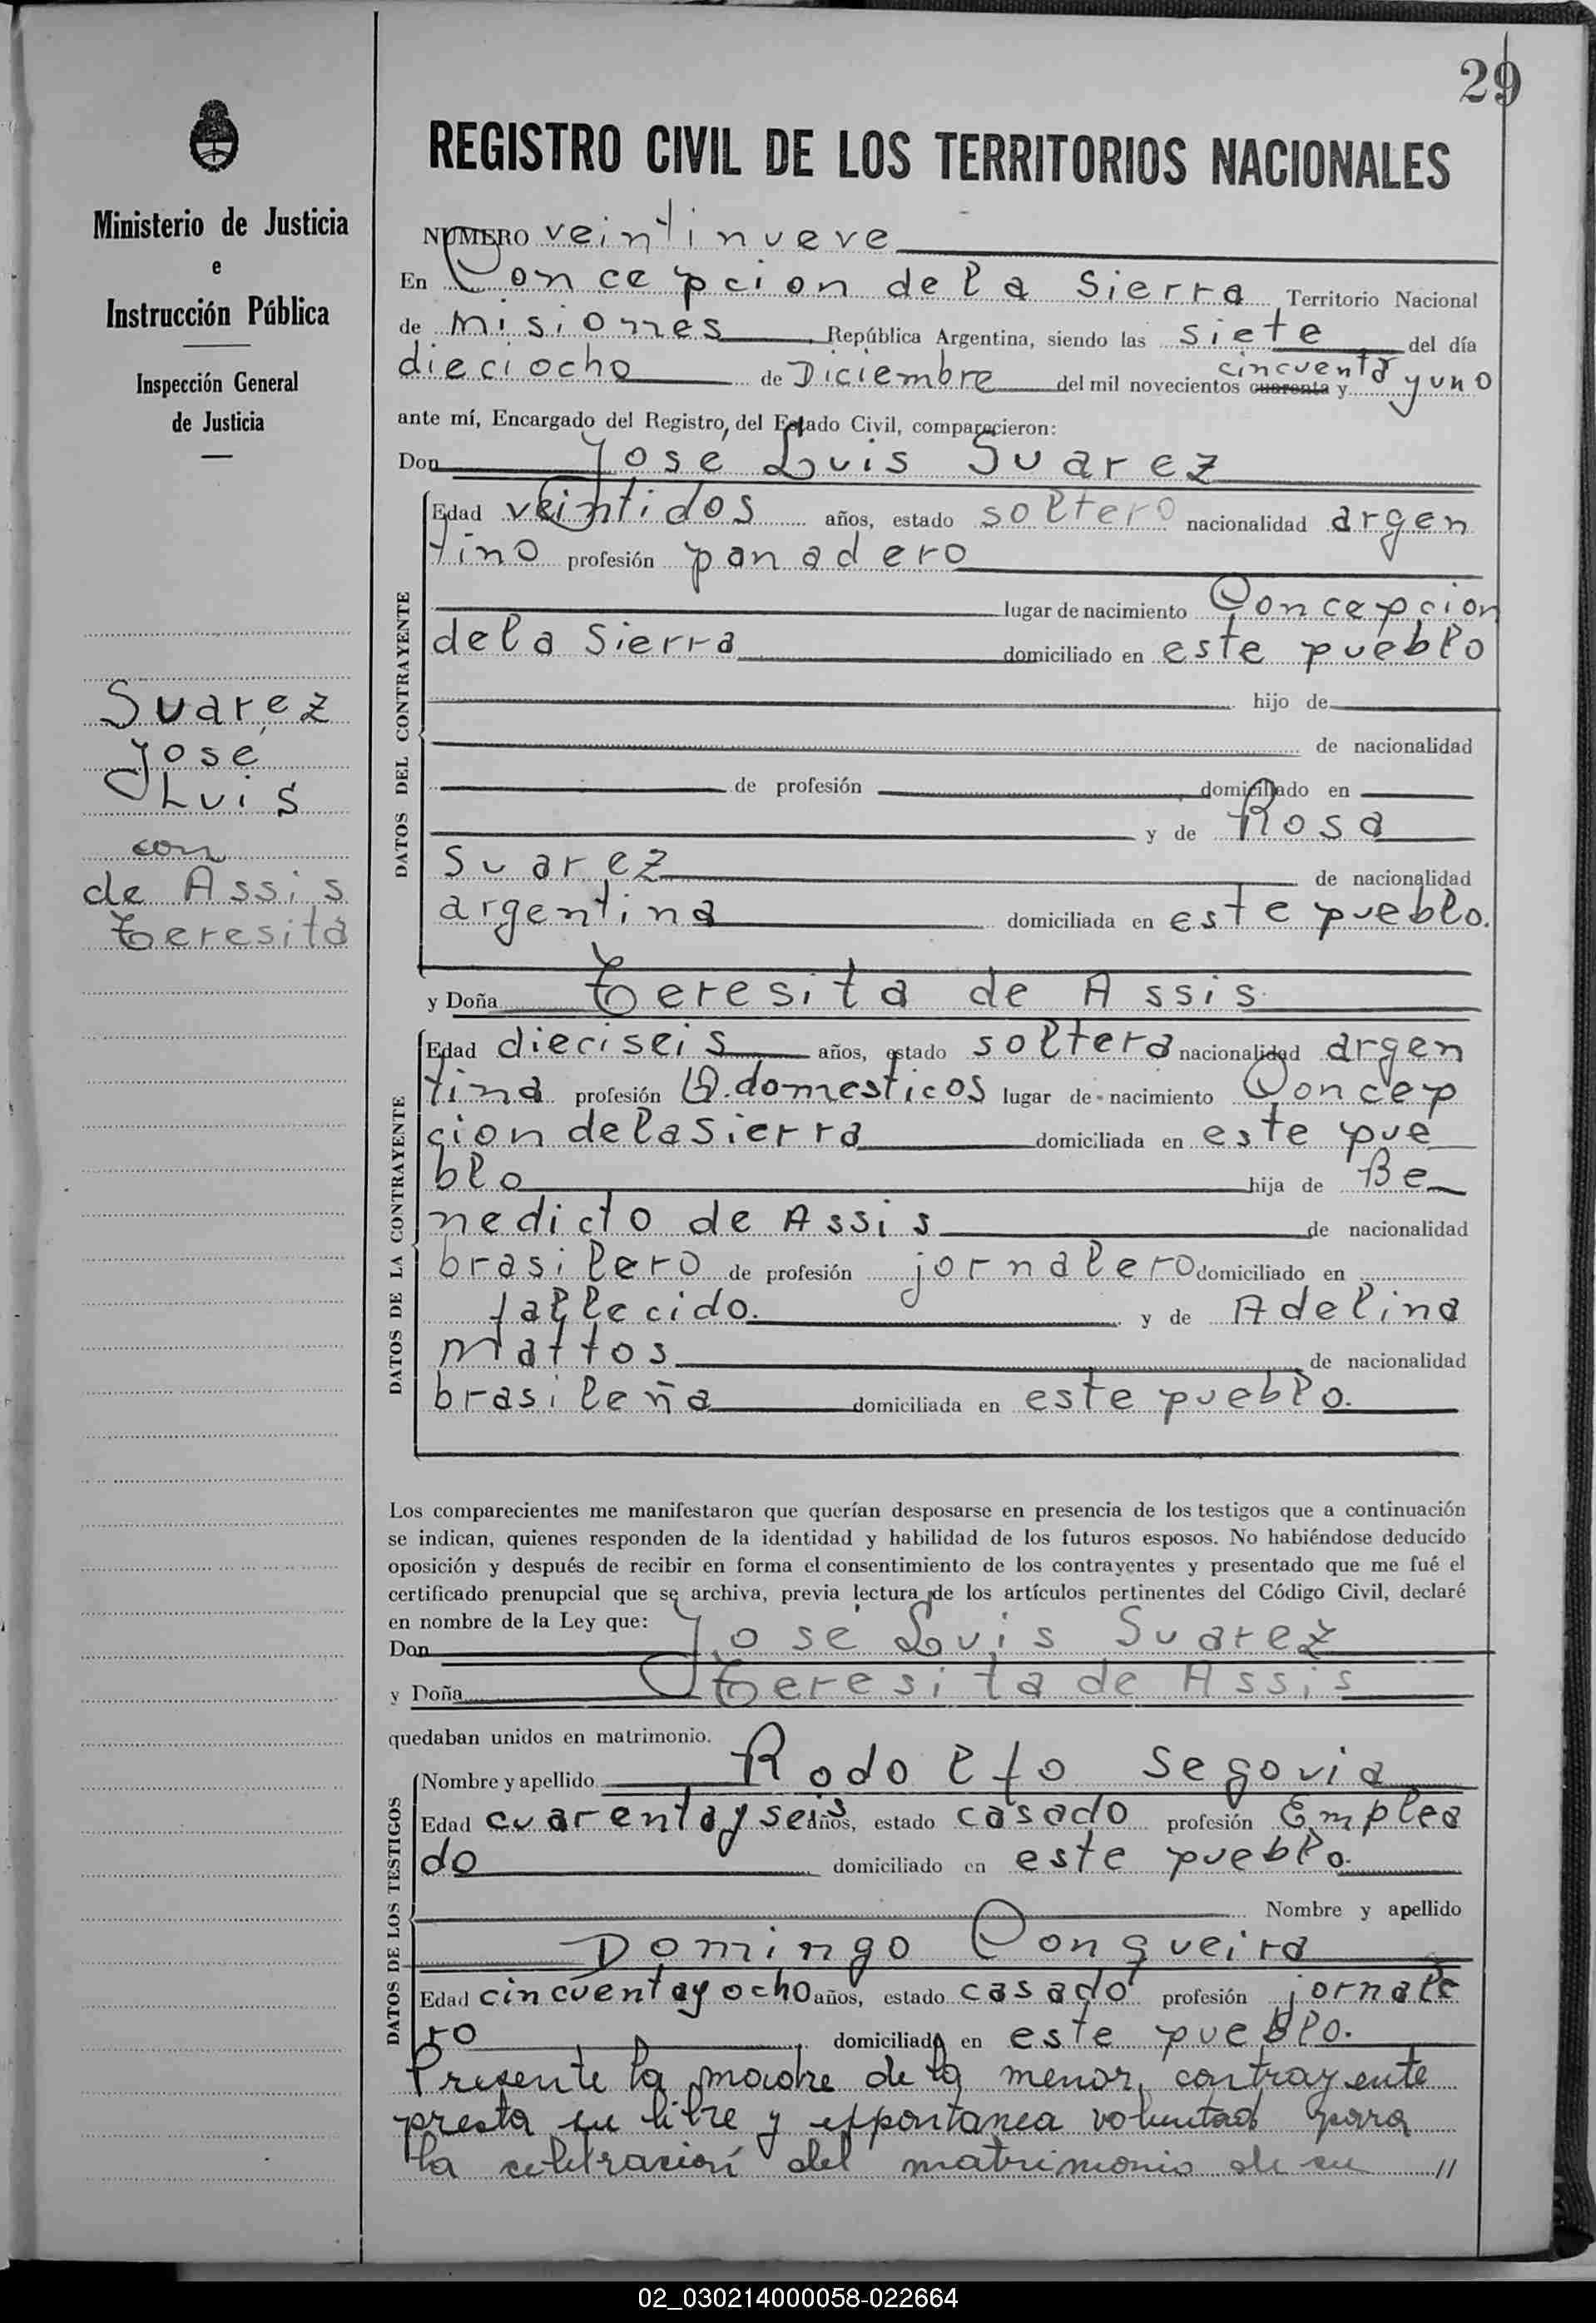 29
Ministerio de Justicia
e
Instrucción Pública
Inspección General
de Justicia
Suarez
Jose
Luis
con
de Assis
Teresita
REGISTRO CIVIL DE LOS TERRITORIOS NACIONALES
NUMERO veintinueve
En Concepcion de la Sierra Territorio Nacional
de Misiones República Argentina, siendo las siete del día
dieciocho de Diciembre del mil novecientos cuarenta y cincuenta y uno
ante mí, Encargado del Registro, del Estado Civil, comparecieron:
Don Jose Luis Suarez
DATOS DEL CONTRAYENTE
Edad veintidos años, estado soltero nacionalidad argen
tino profesión panadero
lugar de nacimiento Concepcion
de la Sierra domiciliado en este pueblo
hijo de
de nacionalidad
de profesión domiciliado en
y de Rosa
Suarez de nacionalidad
argentina domiciliada en este pueblo.
y Doña Teresita de Assis
DATOS DE LA CONTRAYENTE
Edad dieciseis años, estado soltera nacionalidad argen
tina profesión Q. domesticos lugar de nacimiento Concep
cion de la Sierra domiciliada en este pue
blo hija de Be
nedicto de Assis de nacionalidad
brasilero de profesión jornalero domiciliado en
fallecido. y de Adelina
Mattos de nacionalidad
brasileña domiciliada en este pueblo.
Los comparecientes me manifestaron que querían desposarse en presencia de los testigos que a continuación
se indican, quienes responden de la identidad y habilidad de los futuros esposos. No habiéndose deducido
oposición y después de recibir en forma el consentimiento de los contrayentes y presentado que me fué el
certificado prenupcial que se archiva, previa lectura de los artículos pertinentes del Código Civil, declaré
en nombre de la Ley que:
Don Jose Luis Suarez
y Doña Teresita de Assis
quedaban unidos en matrimonio.
DATOS DE LOS TESTIGOS
Nombre y apellido Rodolfo Segovia
Edad cuarenta y seis años, estado casado profesión Emplea
do domiciliado en este pueblo.
Nombre y apellido
Domingo Conqueira
Edad cincuenta y ocho años, estado casado profesión jornale
ro domiciliado en este pueblo.
Presente la madre de la menor, contrayente
presta su libre y espontanea voluntad para
la celebración del matrimonio de su //
02_030214000058-022664